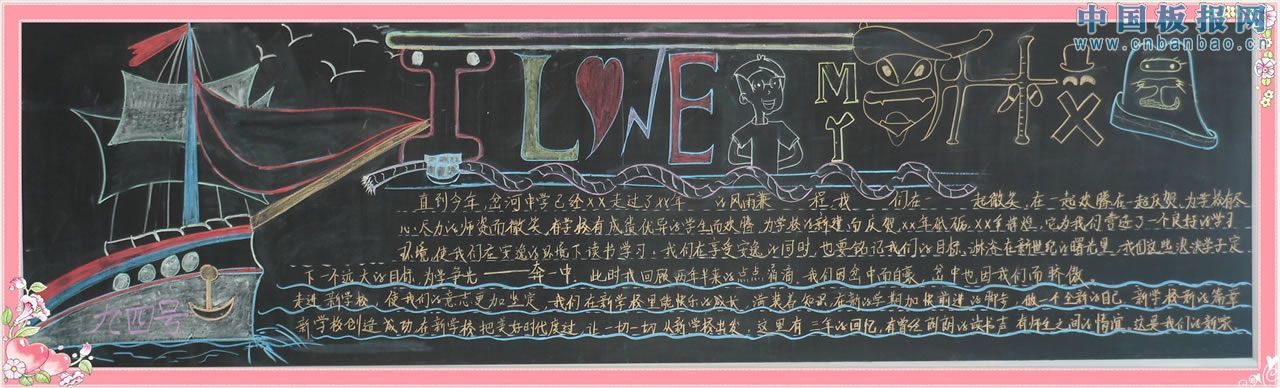 中国板报网
www.cnbanbao.cn
I LOVE MY 新校
九四号
直到今年,岔河中学已经XX走过了XX年 的风雨兼 程,我 们在 一起微笑,在一起欢腾在一起庆贺,为学校有尽
心尽力的师资而微笑,有学校有成绩优异的学生而欢腾,为学校的新建而庆贺,XX年砥砺,XX年辉煌,它为我们营造了一个良好的学习
环境,使我们在安逸的环境下读书学习,我们在享受安逸的同时,也要铭记我们的目标,沐浴在新世纪的曙光里,我们这些泱泱学子定
下一个远大的目标,为学争光——岔一中,此时我回顾两年半来的点点滴滴,我们因岔中而自豪,岔中也因我们而骄傲。
走进新学校,使我们的意志更加坚定,我们在新学里能快乐的成长,满装着知识在新的学期加快前进的脚步,做一个全新的自己,新学校新的篇章
新学校创造成功在新学校把美好时代度过,让一切一切从新学校出发,这里有三年的回忆,有曾经朗朗的读书声 有师生之间的情谊,这是我们的新家